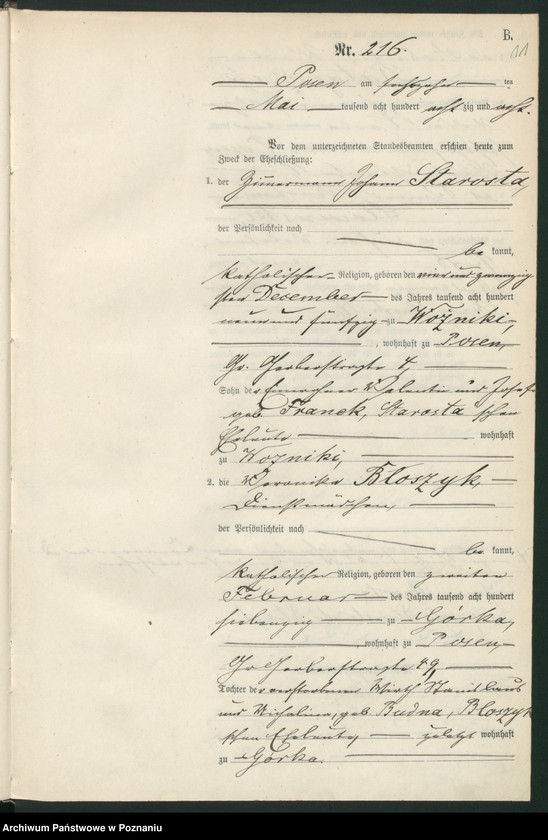 B.
Nr. 216.
Posen am sechszehn ten
Mai tausend acht hundert acht zig und acht.
Vor dem unterzeichneten Standesbeamten erschien heute zum
Zweck der Eheschließung:
1. der Zimmermann Johann Starosta,
der Persönlichkeit nach
be kannt,
katholischer Religion, geboren den vier und zwanzig
sten December des Jahres tausend acht hundert
neun und fünfzig zu Woźniki,
, wohnhaft zu Posen,
Gr. Gerberstraße 4,
Sohn der Valentin und Josefa
geb. Franek, Starosta'schen
Eheleute wohnhaft
zu Woźniki,
2. die Veronika Bloszyk,
Dienstmädchen,
der Persönlichkeit nach
be kannt,
katholischer Religion, geboren den zweiten
Februar des Jahres tausend acht hundert
siebenzig zu Górka,
, wohnhaft zu Posen
Gr. Gerberstraße 49,
Tochter der verstorbenen Wirth Stanislaus
und Michalina, geb. Budna, Bloszyk
'schen Eheleute, zuletzt wohnhaft
zu Górka.
Archiwum Państwowe w Poznaniu